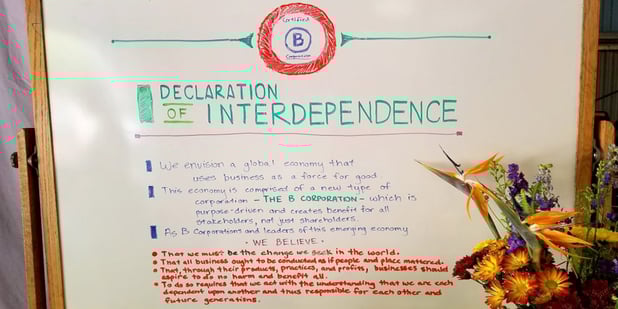 Certified
B
Corporation
DECLARATION
OF INTERDEPENDENCE
We envision a global economy that
uses business as a force for good.
This economy is comprised of a new type of
corporation - THE B CORPORATION - which is
purpose-driven and creates benefit for all
stakeholders, not just shareholders.
As B Corporations and leaders of this emerging economy
• WE BELIEVE •
• That we must be the change we seek in the world.
• That all business ought to be conducted as if people and place mattered.
• That, through their products, practices, and profits, businesses should
aspire to do no harm and benefit all.
• To do so requires that we act with the understanding that we are each
dependent upon another and thus responsible for each other and
future generations.